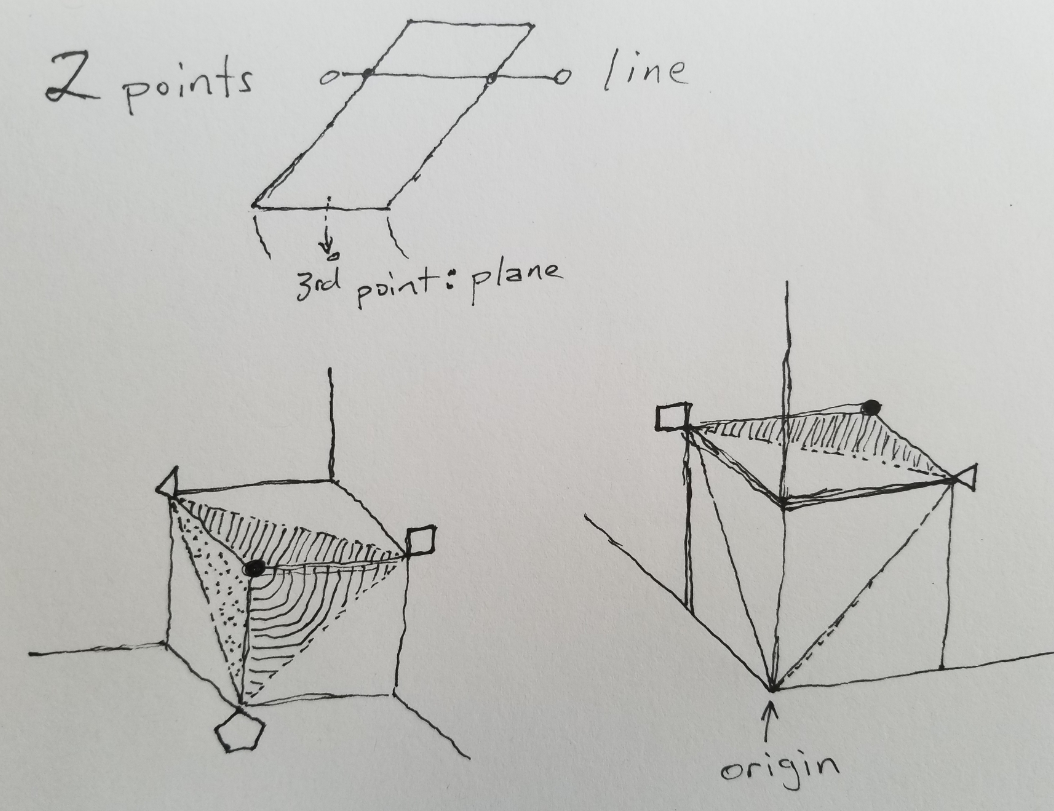 2 points line
3rd point: plane
origin